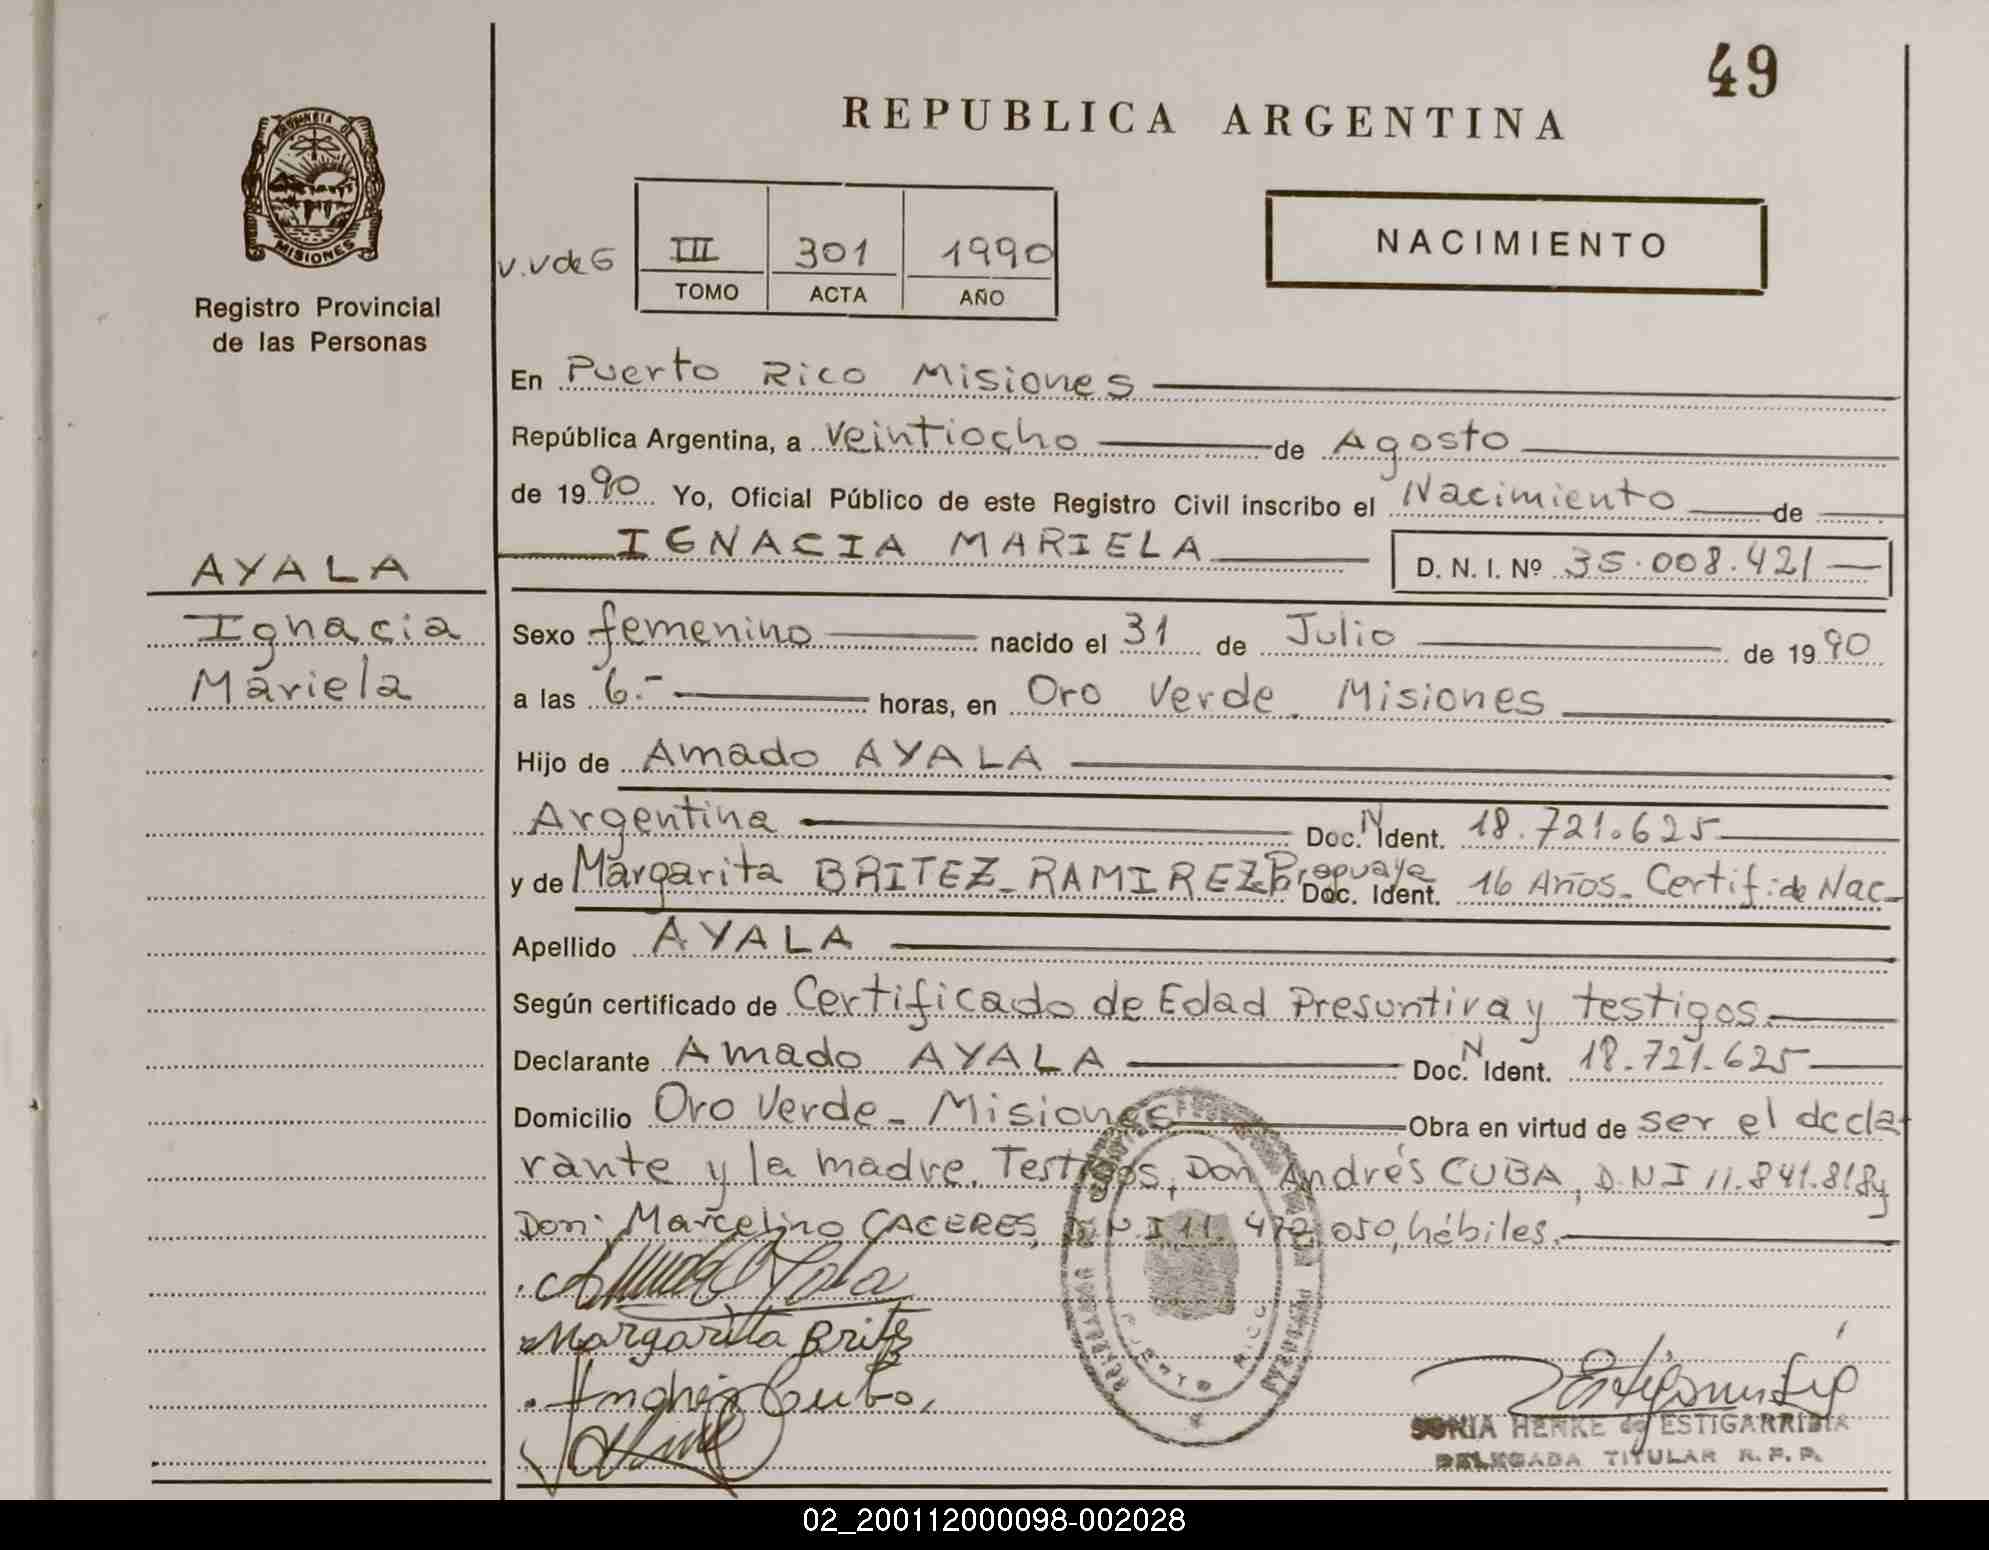 49
REPUBLICA ARGENTINA
PROVINCIA DE
MISIONES
Registro Provincial
de las Personas
v.v de G
III 301 1990
TOMO ACTA AÑO
NACIMIENTO
En Puerto Rico Misiones
República Argentina, a veintiocho de Agosto
de 1990 Yo, Oficial Público de este Registro Civil inscribo el Nacimiento de
IGNACIA MARIELA D. N. I. Nº 35.008.421
AYALA
Ignacia
Mariela
Sexo femenino nacido el 31 de Julio de 1990
a las 6.- horas, en Oro Verde Misiones
Hijo de Amado AYALA
Argentina Doc. N Ident. 18.721.625
y de Margarita BRITEZ-RAMIREZ Doc. Ident. 16 Años- Certif. de Nac-
Apellido AYALA
Según certificado de Certificado de Edad Presuntiva y testigos.
Declarante Amado AYALA Doc. N Ident. 18.721.625
Domicilio Oro Verde- Misiones Obra en virtud de ser el decla-
rante y la madre. Testigos, Don Andrés CUBA, DNI 11.841.818 y
Don: Marcelino CACERES, D.N.I 11. 472.050, hábiles.
Margarita Britez
Andrés Cuba
PUERTO RICO
SONIA HENKE de ESTIGARRIBIA
DELEGADA TITULAR R.P.P.
02_200112000098-002028